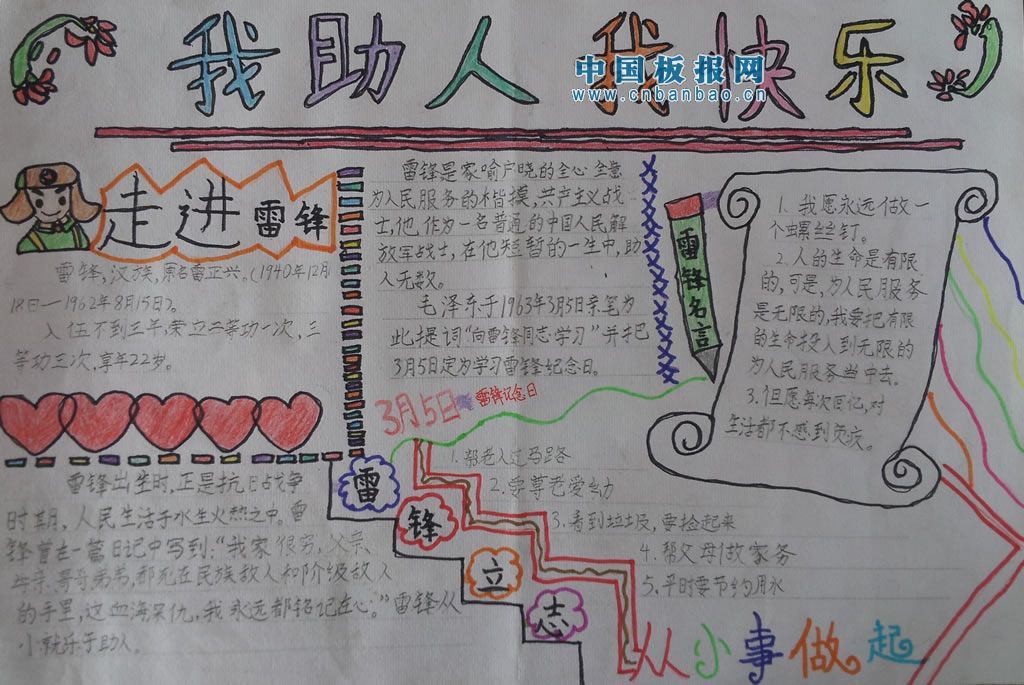 我助人我快乐
中国板报网
www.cnbanbao.cn
走进雷锋
雷锋,汉族,原名雷正兴。(1940年12月
18日—1962年8月15日)。
入伍不到三年,荣立二等功一次,三
等功三次,享年22岁。
雷锋是家喻户晓的全心全意
为人民服务的楷模,共产主义战
士,他作为一名普通的中国人民解
放军战士,在他短暂的一生中,助
人无数。
毛泽东于1963年3月5日亲笔为
此提词“向雷锋同志学习”并把
3月5日定为学习雷锋纪念日。
3月5日
雷锋记念日
雷锋名言
1.我愿永远做一
个螺丝钉。
2.人的生命是有限
的,可是,为人民服务
是无限的,我要把有限
的生命投入到无限的
为人民服务当中去。
3.但愿每次回亿,对
生活都不感到负疚。
雷锋出生时,正是抗日战争
时期,人民生活于水生火热之中。雷
锋曾在一篇日记中写到:“我家很穷,父亲、
母亲、哥哥弟弟,都死在民族敌人和阶级敌人
的手里,这血海深仇,我永远都铭记在心。”雷锋从
小就乐于助人。
雷
锋
立
志
1.帮老人过马路
2.要尊老爱幼
3.看到垃圾,要捡起来
4.帮父母做家务
5.平时要节约用水
从小事做起